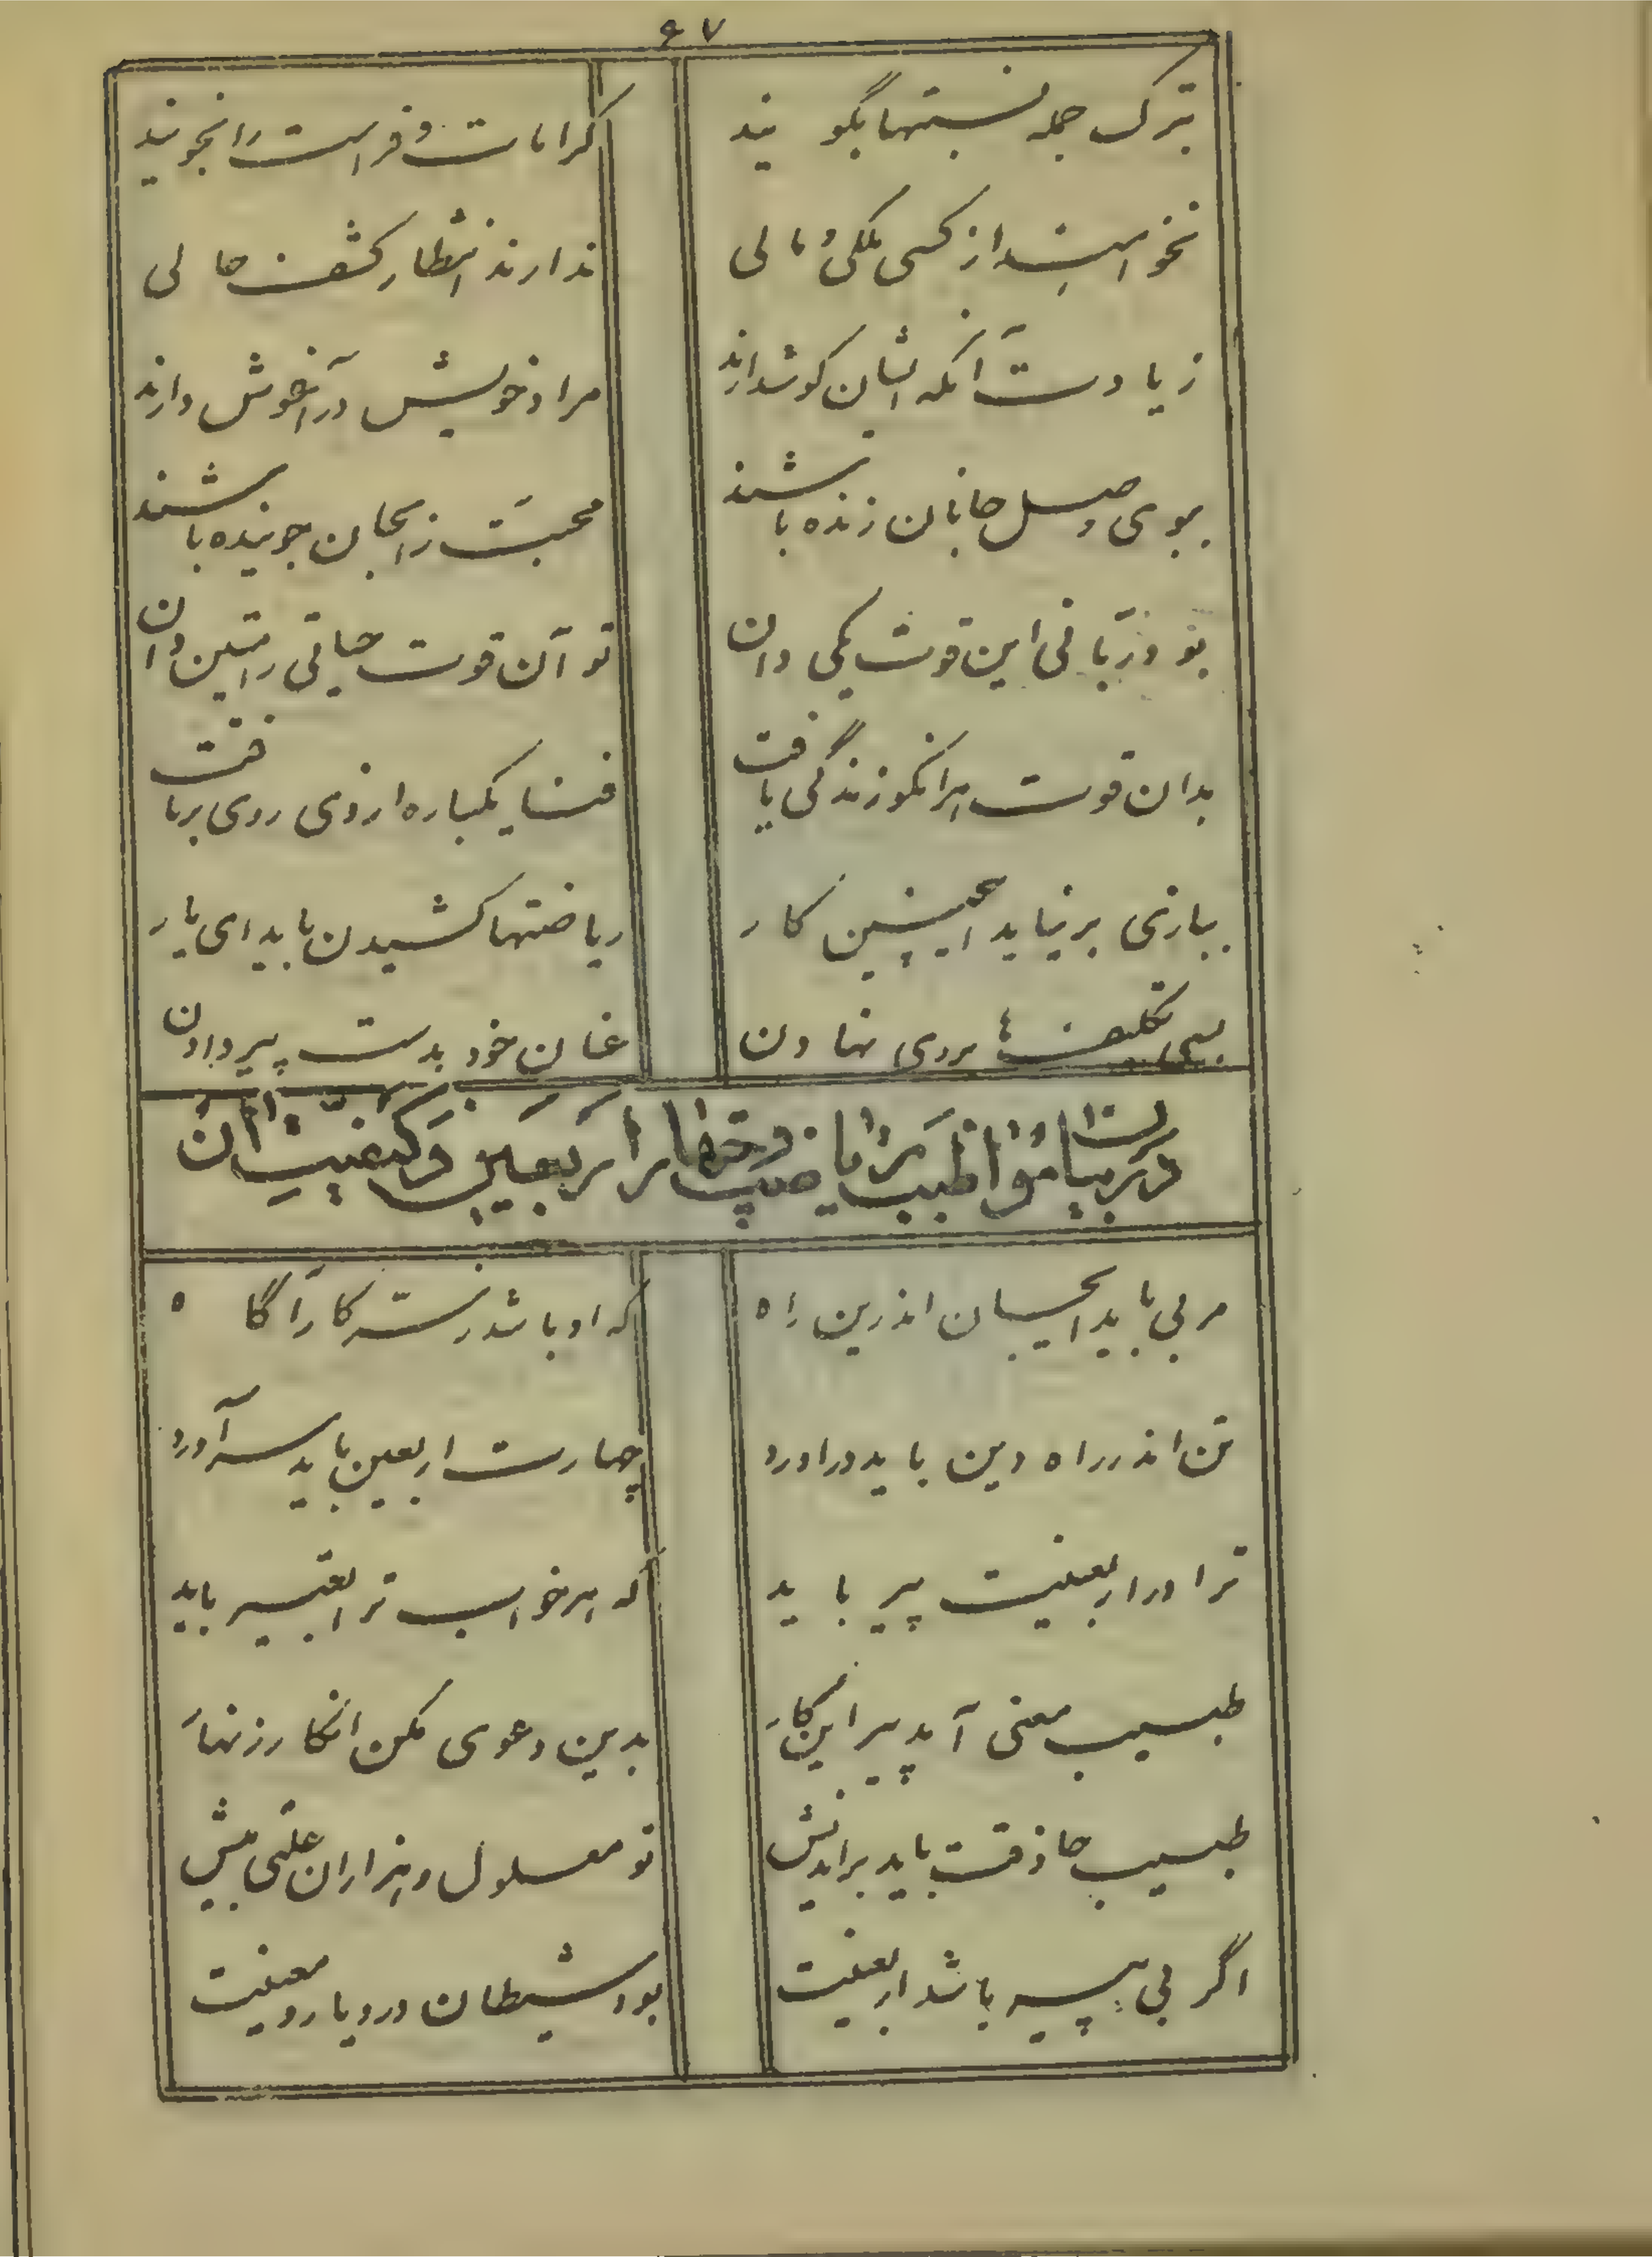 ۶۷
بترک جمله نسبتها بگویند	کرامات و فراست را نجویند
نخواهند از کسی ملکی و مالی	ندارند انتظار کشف حالی
زیادت آنکه ایشان گوشدارند	مراد خویش در آغوش دارند
ببوی وصل جانان زنده باشند	محبت را بجان جوینده باشند
بود ربانی این قوت یکی دان	تو آن قوت حیاتی راستین دان
بدان قوت هرانکو زندگی یافت	فنا یکباره از وی روی برتافت
ببازی برنیاید اینچنین کار	ریاضتها کشیدن باید ای یار
بسی تکلیف بروی نهادن	عنان خود بدست پیر دادن
در بیان مواظبت بر ریاضت و خوف از اربعین و کیفیت آن
مربی باید اینجا اندرین راه	که او باشد ز سر کار آگاه
تن اندر راه دین باید درآورد	چهارت اربعین باید سرآورد
ترا در اربعینت پیر باید	که هر خواب ترا تعبیر باید
طبیب معنی آید پیر این کار	بدین دعوی مکن انکار زنهار
طبیب حاذقت باید براندیش	تو معلول و هزاران علتی بیش
اگر بی پیر باشد اربعینت	بود شیطان در و یار و معینت